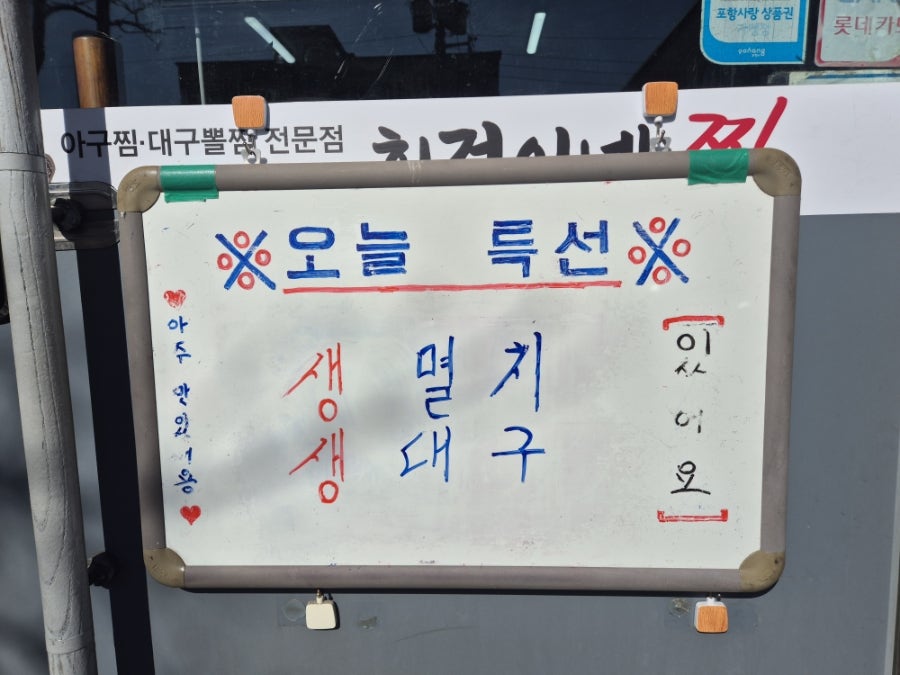 포항사랑 상품권
가맹점
pohang
롯데카드
아구찜·대구뽈찜 전문점
찜
※오늘 특선※
생 멸치
생 대구
♥아주 맛있어용♥
[있어요]